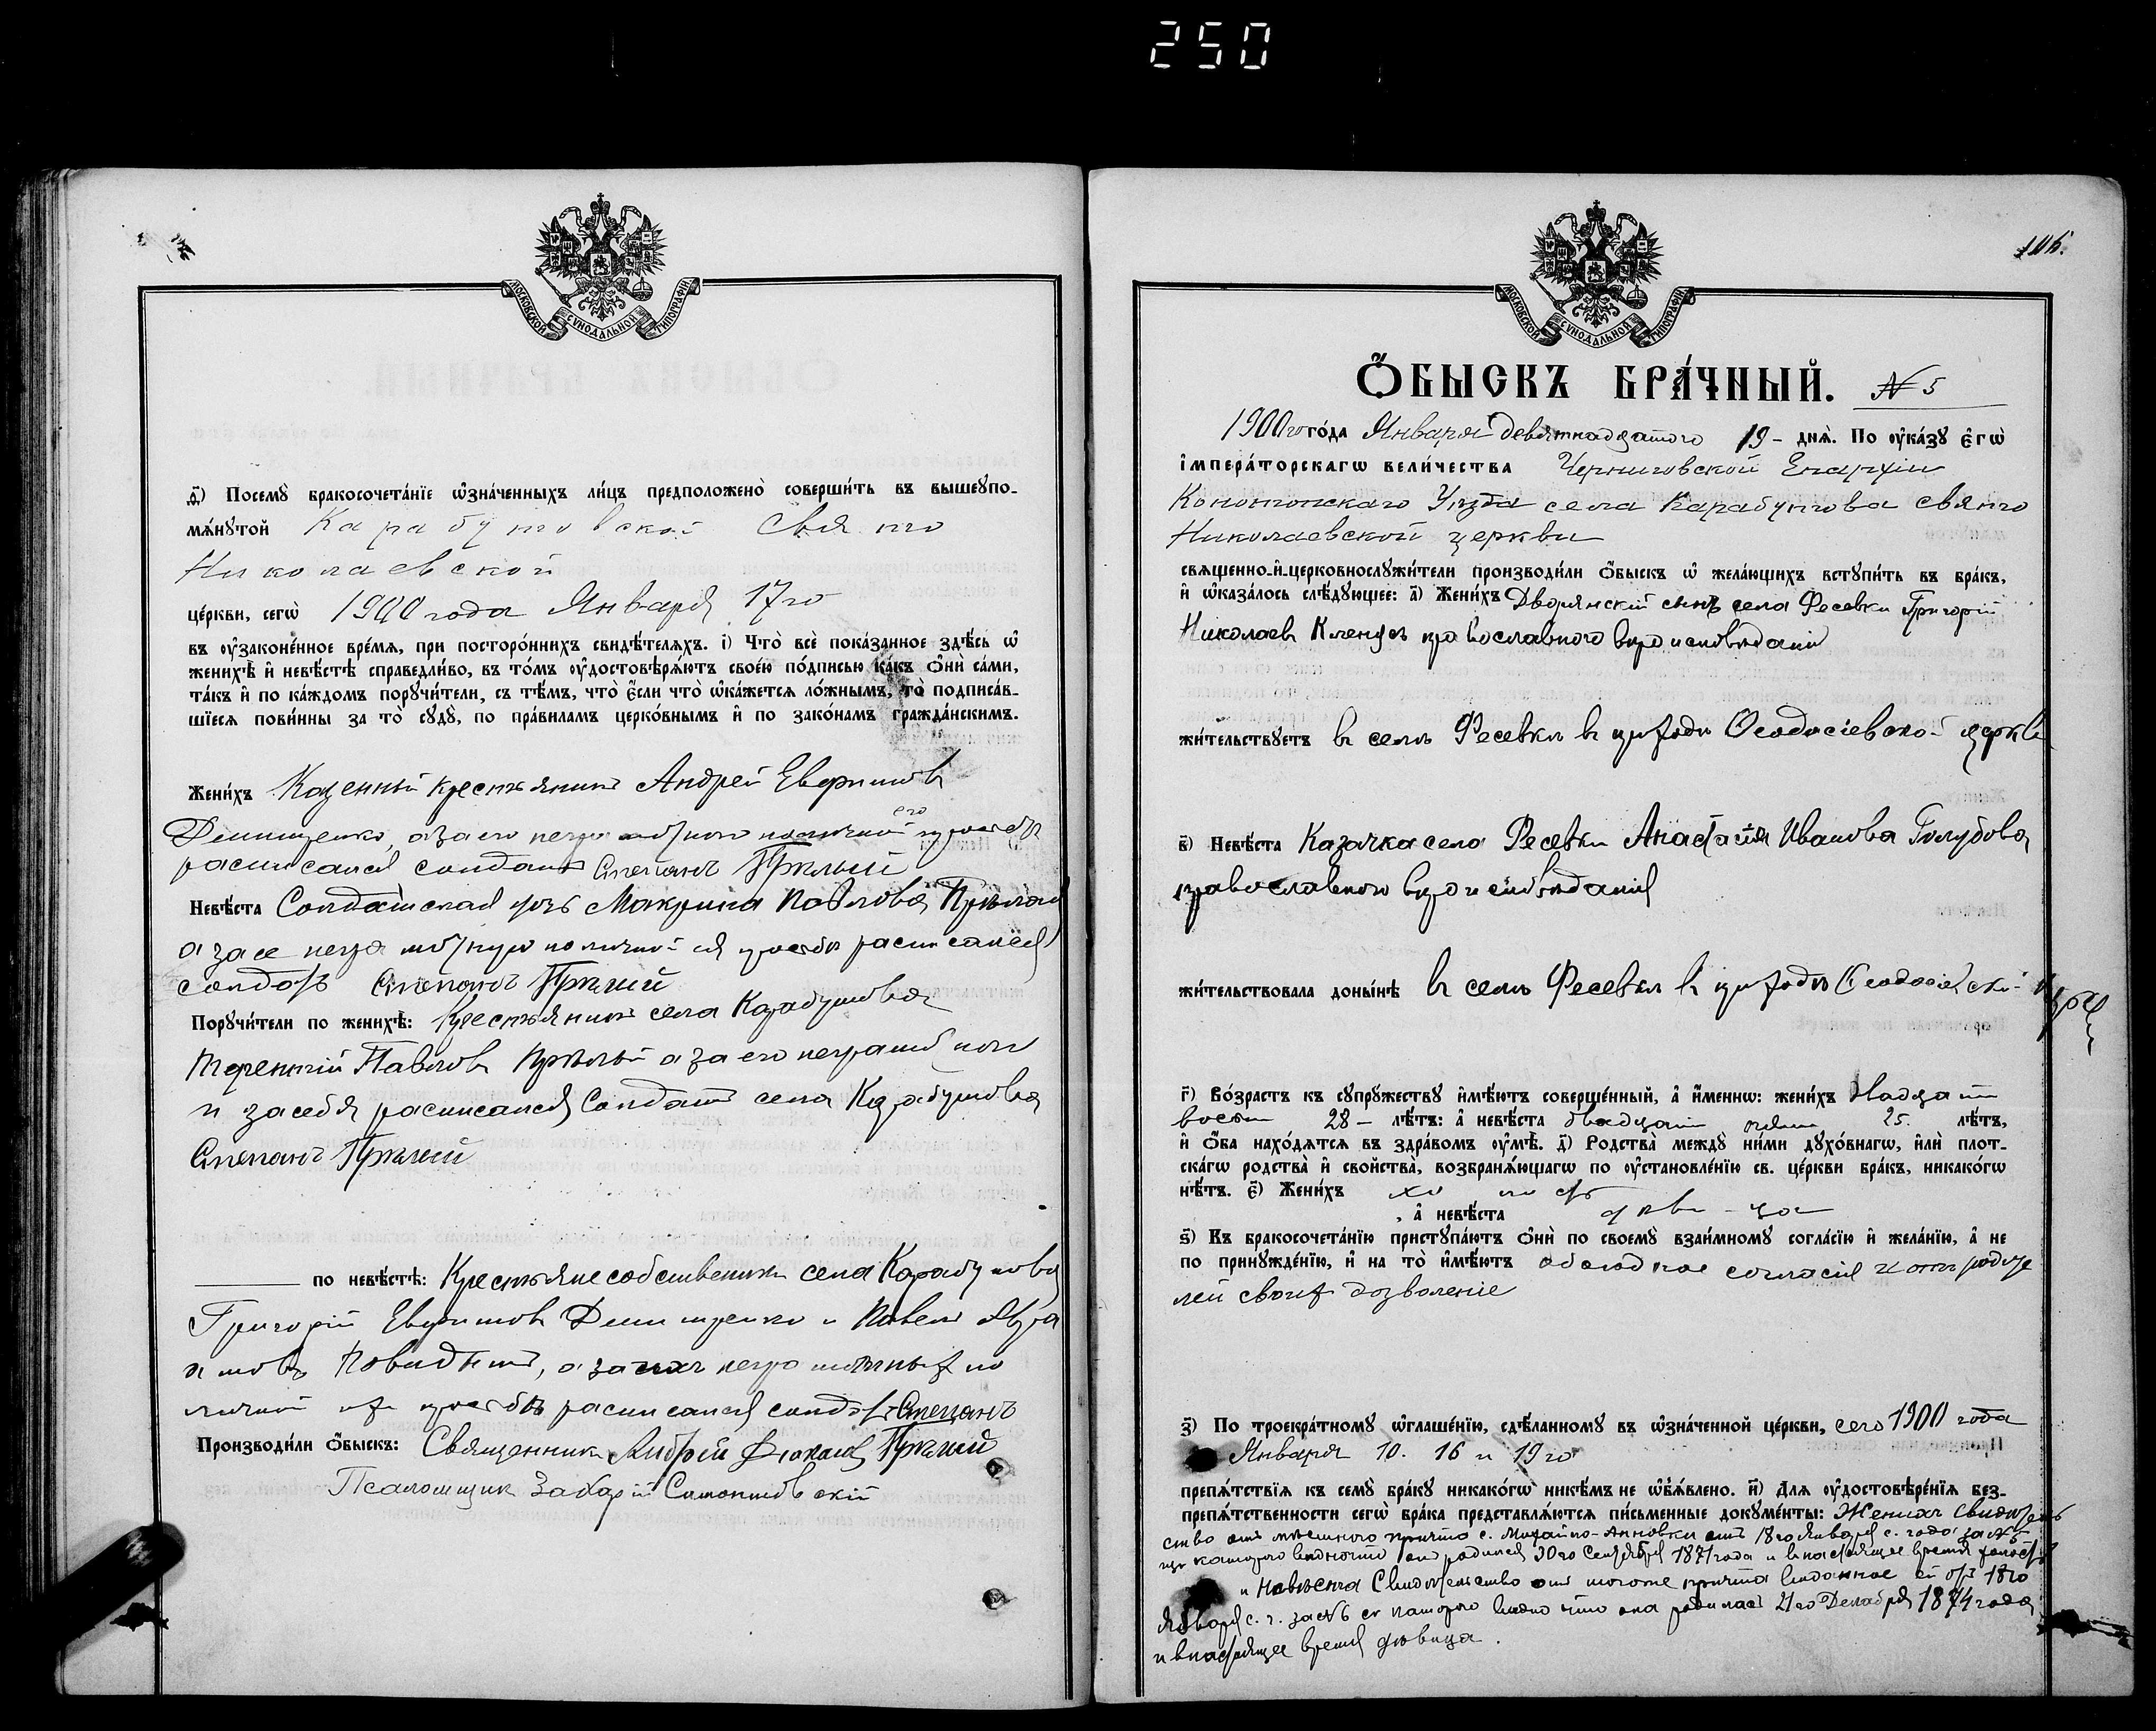 250
МОСКОВСКОЙ СѴНОДАЛЬНОЙ ТИПОГРАФІИ
д҃) Посемꙋ бракосочета́нїе ѡ҆зна́ченныхъ ли́цъ предположено̀ соверши́ть въ вышеꙋпо-
мѧ́нꙋтой Карабутовской Свято
Николаевской
це́ркви, сегѡ̀ 1900 года Января 17го
въ ᲂу҆зако́нное вре́мѧ, при посторо́ннихъ свидѣ́телѧхъ. і҃) Что̀ всѐ пока́занное здѣ́сь ѡ҆
женихѣ̀ и҆ невѣ́стѣ справедли́во, въ то́мъ ᲂу҆достовѣрѧ́ютъ свое́ю по́дписью ка́къ ѻ҆нѝ са́ми,
та́къ и҆ по ка́ждомъ порꙋчи́тели, съ тѣ́мъ, что̀ є҆́сли что̀ ѡ҆ка́жетсѧ ло́жнымъ, то̀ подписа́в-
шїесѧ пови́нны за то̀ сꙋдꙋ̀, по пра́виламъ церко́внымъ и҆ по зако́намъ гражда́нскимъ.
Жени́хъ Казенный крестьянинъ Андрей Евфимовъ
Демищенко, а за его неграмотного по личной его просьбѣ
расписался солдатъ Степанъ Прилый
Невѣ́ста Солдатская дочь Макрина Павлова
а за ее неграмотную по личной ея просьбѣ расписался
солдатъ Степанъ
Порꙋчи́тели по женихѣ̀: Крестьянинъ села Карабутова
Терентій Павловъ а за его неграмотного
и за себя расписался Солдатъ села Карабутова
Степанъ
по невѣ́стѣ: Крестьяне собственики села Карабутова
Григорій Евфимовъ и Павелъ
а за нихъ неграмотныхъ по
личной ихъ просьбѣ расписался солдатъ Степанъ
Производи́ли ѻ҆́быскъ: Священникъ Андрей
Псаломщикъ Захарій
106.
МОСКОВСКОЙ СѴНОДАЛЬНОЙ ТИПОГРАФІИ
Ѻ҆́БЫСКЪ БРА́ЧНЫЙ. № 5
1900го го́да Января девятнадцатого 19 - днѧ̀. По ᲂу҆ка́зꙋ є҆гѡ̀
і҆мпера́торскагѡ вели́чества Черниговской Епархіи
Конотопскаго Уѣзда села Карабутова Свято
Николаевской церкви
свѧщенно-и҆-церковнослꙋжи́тели производи́ли ѻ҆́быскъ ѡ҆ жела́ющихъ встꙋпи́ть въ бра́къ,
и҆ ѡ҆каза́лось слѣ́дꙋющее: а҃) Жени́хъ Дворянскій сынъ села Фесевки Григорій
Николаевъ православного вѣроисповѣданія
жи́тельствꙋетъ въ селѣ Фесевкѣ въ приходѣ Ѳеодосіевской церкви
в҃) Невѣ́ста Казачка села Фесевки Анастасія Иванова Голубова
православного вѣроисповѣданія
жи́тельствовала доны́нѣ въ селѣ Фесевкѣ въ приходѣ Ѳеодосіевской церкви
г҃) Во́зрастъ къ сꙋпрꙋ́жествꙋ и҆мѣ́ютъ соверше́нный, а҆ и҆́менно: жени́хъ двадцати
восьми 28 - лѣ́тъ: а҆ невѣ́ста двадцати пяти 25. лѣ́тъ,
и҆ ѻ҆́ба нахо́дѧтсѧ въ здра́вомъ ᲂу҆мѣ̀. д҃) Родства̀ междꙋ̀ ни́ми дꙋхо́внагѡ, и҆лѝ плот-
ска́гѡ родства̀ и҆ сво́йства, возбранѧ́ющагѡ по ᲂу҆становле́нїю св. це́ркви бра́къ, никако́гѡ
нѣ́тъ. є҃) Жени́хъ холостъ
, а҆ невѣ́ста дѣвица
ѕ҃) Къ бракосочета́нїю пристꙋпа́ютъ ѻ҆нѝ по своемꙋ̀ взаи́мномꙋ согла́сїю и҆ жела́нїю, а҆ не
по принꙋжде́нїю, и҆ на то̀ и҆мѣ́ютъ обоюдное согласіе и отъ родите
лей своихъ дозволеніе
з҃) По троекра́тномꙋ ѡ҆глаше́нїю, сдѣ́ланномꙋ въ ѡ҆зна́ченной це́ркви, сего 1900 года
Января 10. 16 и 19го
препѧ́тствїѧ къ семꙋ̀ бра́кꙋ никако́гѡ никѣ́мъ не ѡ҆б̾ѧ́влено. и҃) Длѧ ᲂу҆достовѣре́нїѧ без-
препѧ́тственности сегѡ̀ бра́ка представлѧ́ютсѧ пи́сьменные докꙋме́нты: Женихъ свидѣтель
ство отъ причта с. Михайло-Анновки отъ 18го Января с. года за №
изъ котораго видно что онъ родился 30го Сентября 1871 года и въ настоящее время холостъ
и Невѣста Свидѣтельство отъ тогоже причта выданное ей отъ 18го
Января с. г. за №6 изъ котораго видно что она родилась 21го Декабря 1874 года
и въ настоящее время дѣвица.